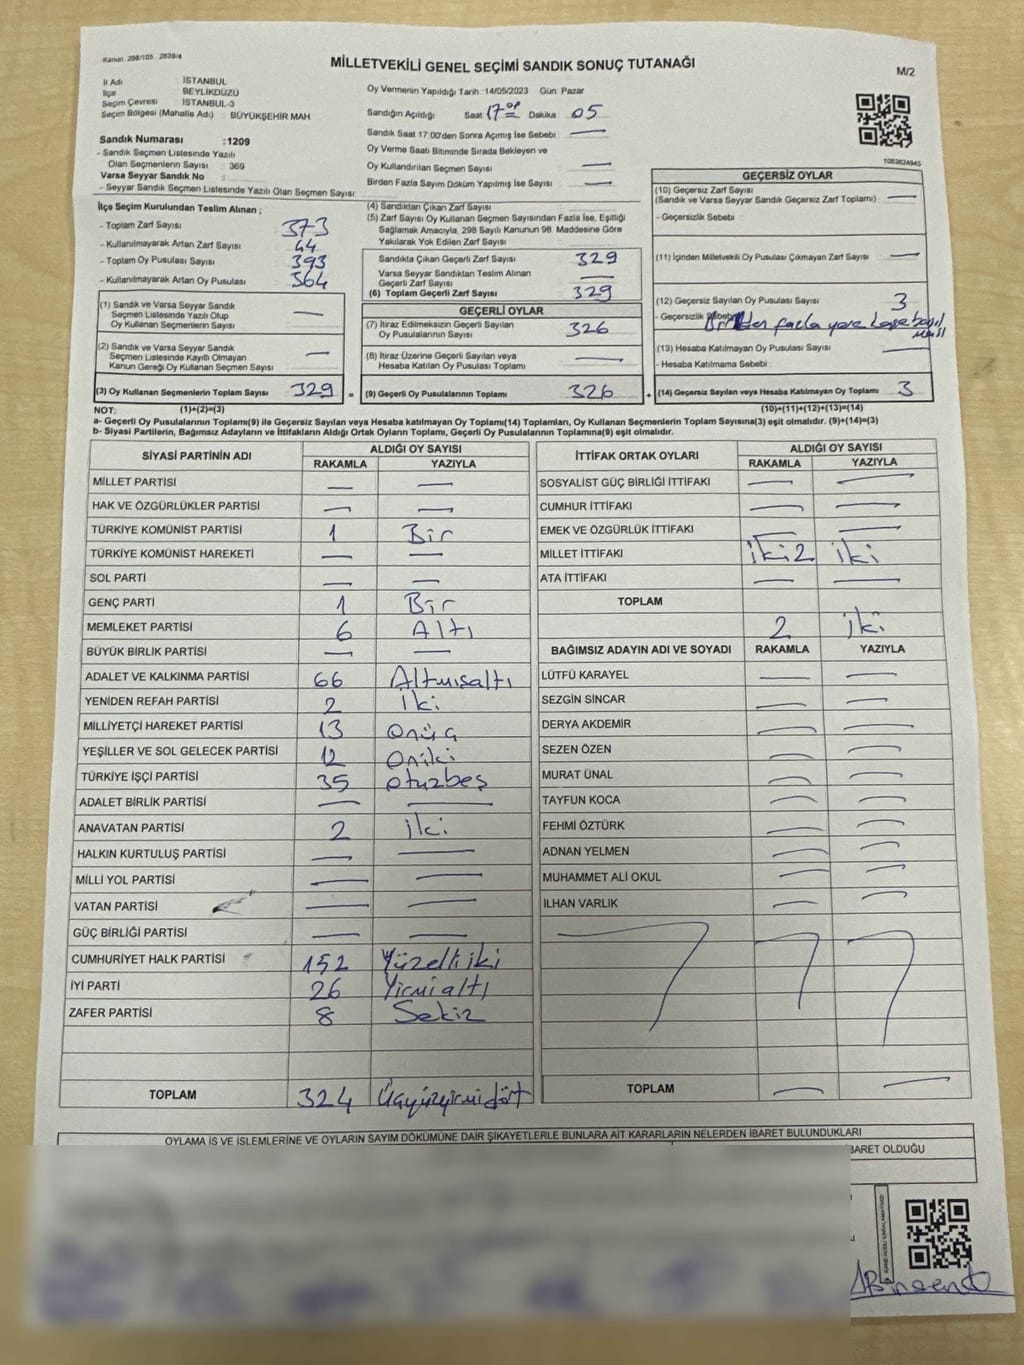 Kanun 298/105 , 2839/4
MİLLETVEKİLİ GENEL SEÇİMİ SANDIK SONUÇ TUTANAĞI
M/2
İl Adı : İSTANBUL
İlçe : BEYLİKDÜZÜ
Seçim Çevresi : İSTANBUL-3
Seçim Bölgesi (Mahalle Adı) : BÜYÜKŞEHİR MAH
Sandık Numarası : 1209
- Sandık Seçmen Listesinde Yazılı
Olan Seçmenlerin Sayısı : 369
Varsa Seyyar Sandık No :
- Seyyar Sandık Seçmen Listesinde Yazılı Olan Seçmen Sayısı :
Oy Vermenin Yapıldığı Tarih : 14/05/2023 Gün Pazar
Sandığın Açıldığı Saat 17:00 Dakika 05
Sandık Saat 17:00'den Sonra Açımış İse Sebebi : —
Oy Verme Saati Bitiminde Sırada Bekleyen ve
Oy Kullandırılan Seçmen Sayısı : —
Birden Fazla Sayım Döküm Yapılmış İse Sayısı : —
1083624945
İlçe Seçim Kurulundan Teslim Alınan ;
- Toplam Zarf Sayısı : 373
- Kullanılmayarak Artan Zarf Sayısı : 44
- Toplam Oy Pusulası Sayısı : 393
- Kullanılmayarak Artan Oy Pusulası : 364
(1) Sandık ve Varsa Seyyar Sandık
Seçmen Listesinde Yazılı Olup
Oy Kullanan Seçmenlerin Sayısı : —
(2) Sandık ve Varsa Seyyar Sandık
Seçmen Listesinde Kayıtlı Olmayan
Kanun Gereği Oy Kullanan Seçmen Sayısı : —
(3) Oy Kullanan Seçmenlerin Toplam Sayısı : 329 =
(4) Sandıktan Çıkan Zarf Sayısı :
(5) Zarf Sayısı Oy Kullanan Seçmen Sayısından Fazla İse, Eşitliği
Sağlamak Amacıyla, 298 Sayılı Kanunun 98. Maddesine Göre
Yakılarak Yok Edilen Zarf Sayısı :
Sandıkta Çıkan Geçerli Zarf Sayısı : 329
Varsa Seyyar Sandıktan Teslim Alınan
Geçerli Zarf Sayısı : —
(6) Toplam Geçerli Zarf Sayısı : 329
GEÇERLİ OYLAR
(7) İtiraz Edilmeksizin Geçerli Sayılan
Oy Pusulalarının Sayısı : 326
(8) İtiraz Üzerine Geçerli Sayılan veya
Hesaba Katılan Oy Pusulası Toplamı : —
(9) Geçerli Oy Pusulalarının Toplamı : 326 +
GEÇERSİZ OYLAR
(10) Geçersiz Zarf Sayısı
(Sandık ve Varsa Seyyar Sandık Geçersiz Zarf Toplamı) : —
- Geçersizlik Sebebi :
(11) İçinden Milletvekili Oy Pusulası Çıkmayan Zarf Sayısı : —
(12) Geçersiz Sayılan Oy Pusulası Sayısı : 3
- Geçersizlik Sebebi : Birden fazla yere kaşe basıl
ması
(13) Hesaba Katılmayan Oy Pusulası Sayısı : —
- Hesaba Katılmama Sebebi :
(14) Geçersiz Sayılan veya Hesaba Katılmayan Oy Toplamı : 3
NOT: (1)+(2)=(3)
(10)+(11)+(12)+(13)=(14)
a- Geçerli Oy Pusulalarının Toplamı(9) ile Geçersiz Sayılan veya Hesaba katılmayan Oy Toplamı(14) Toplamları, Oy Kullanan Seçmenlerin Toplam Sayısına(3) eşit olmalıdır. (9)+(14)=(3)
b- Siyasi Partilerin, Bağımsız Adayların ve İttifakların Aldığı Ortak Oyların Toplamı, Geçerli Oy Pusulalarının Toplamına(9) eşit olmalıdır.
SİYASİ PARTİNİN ADI ALDIĞI OY SAYISI
RAKAMLA YAZIYLA
MİLLET PARTİSİ — —
HAK VE ÖZGÜRLÜKLER PARTİSİ — —
TÜRKİYE KOMÜNİST PARTİSİ 1 Bir
TÜRKİYE KOMÜNİST HAREKETİ — —
SOL PARTİ — —
GENÇ PARTİ 1 Bir
MEMLEKET PARTİSİ 6 Altı
BÜYÜK BİRLİK PARTİSİ — —
ADALET VE KALKINMA PARTİSİ 66 Altmışaltı
YENİDEN REFAH PARTİSİ 2 İki
MİLLİYETÇİ HAREKET PARTİSİ 13 Onüç
YEŞİLLER VE SOL GELECEK PARTİSİ 12 Oniki
TÜRKİYE İŞÇİ PARTİSİ 35 otuzbeş
ADALET BİRLİK PARTİSİ — —
ANAVATAN PARTİSİ 2 iki
HALKIN KURTULUŞ PARTİSİ — —
MİLLİ YOL PARTİSİ — —
VATAN PARTİSİ — —
GÜÇ BİRLİĞİ PARTİSİ — —
CUMHURİYET HALK PARTİSİ 152 Yüzelliiki
İYİ PARTİ 26 Yirmialtı
ZAFER PARTİSİ 8 Sekiz
TOPLAM 324 Üçyüzyirmidört
İTTİFAK ORTAK OYLARI ALDIĞI OY SAYISI
RAKAMLA YAZIYLA
SOSYALİST GÜÇ BİRLİĞİ İTTİFAKI — —
CUMHUR İTTİFAKI — —
EMEK VE ÖZGÜRLÜK İTTİFAKI — —
MİLLET İTTİFAKI iki2 iki
ATA İTTİFAKI — —
TOPLAM 2 iki
BAĞIMSIZ ADAYIN ADI VE SOYADI RAKAMLA YAZIYLA
LÜTFÜ KARAYEL — —
SEZGİN SİNCAR — —
DERYA AKDEMİR — —
SEZEN ÖZEN — —
MURAT ÜNAL — —
TAYFUN KOCA — —
FEHMİ ÖZTÜRK — —
ADNAN YELMEN — —
MUHAMMET ALİ OKUL — —
İLHAN VARLIK — —
TOPLAM — —
OYLAMA İŞ VE İŞLEMLERİNE VE OYLARIN SAYIM DÖKÜMÜNE DAİR ŞİKAYETLERLE BUNLARA AİT KARARLARIN NELERDEN İBARET BULUNDUKLARI
İBARET OLDUĞU